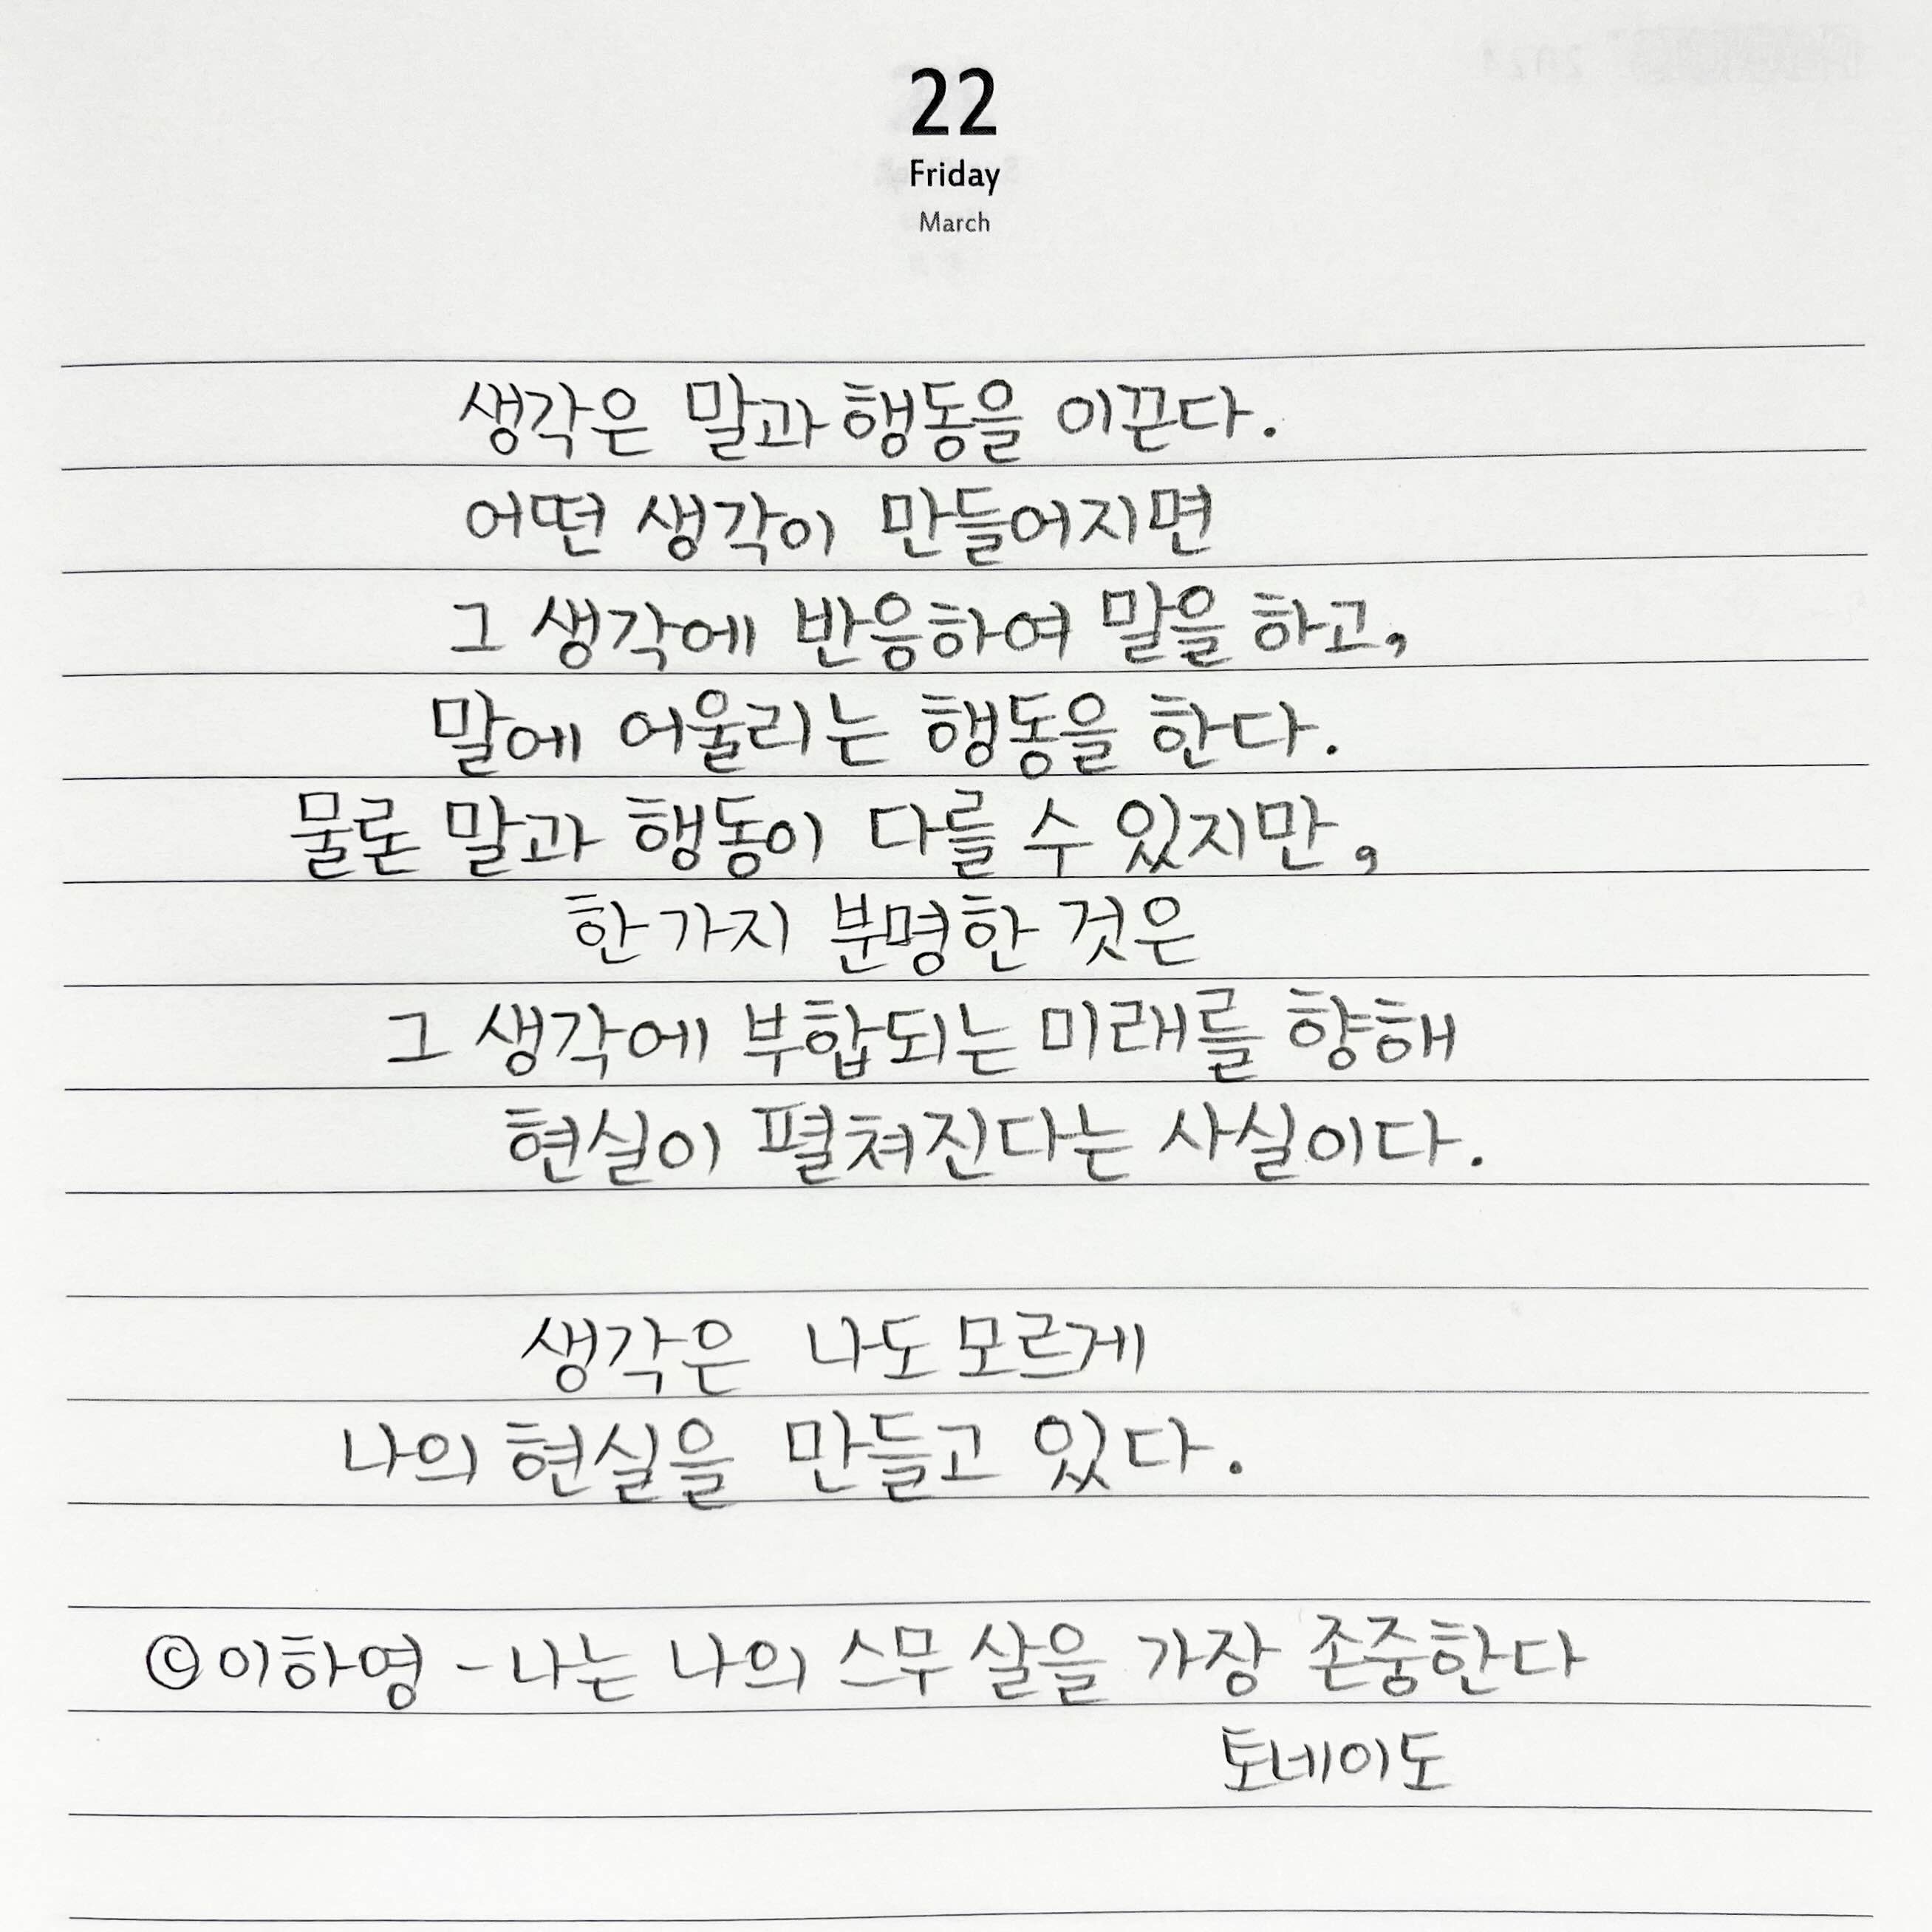 22
Friday
March
생각은 말과 행동을 이끈다.
어떤 생각이 만들어지면
그 생각에 반응하여 말을 하고,
말에 어울리는 행동을 한다.
물론 말과 행동이 다를 수 있지만,
한가지 분명한 것은
그 생각에 부합되는 미래를 향해
현실이 펼쳐진다는 사실이다.
생각은 나도 모르게
나의 현실을 만들고 있다.
©이하영 - 나는 나의 스무 살을 가장 존중한다
토네이도